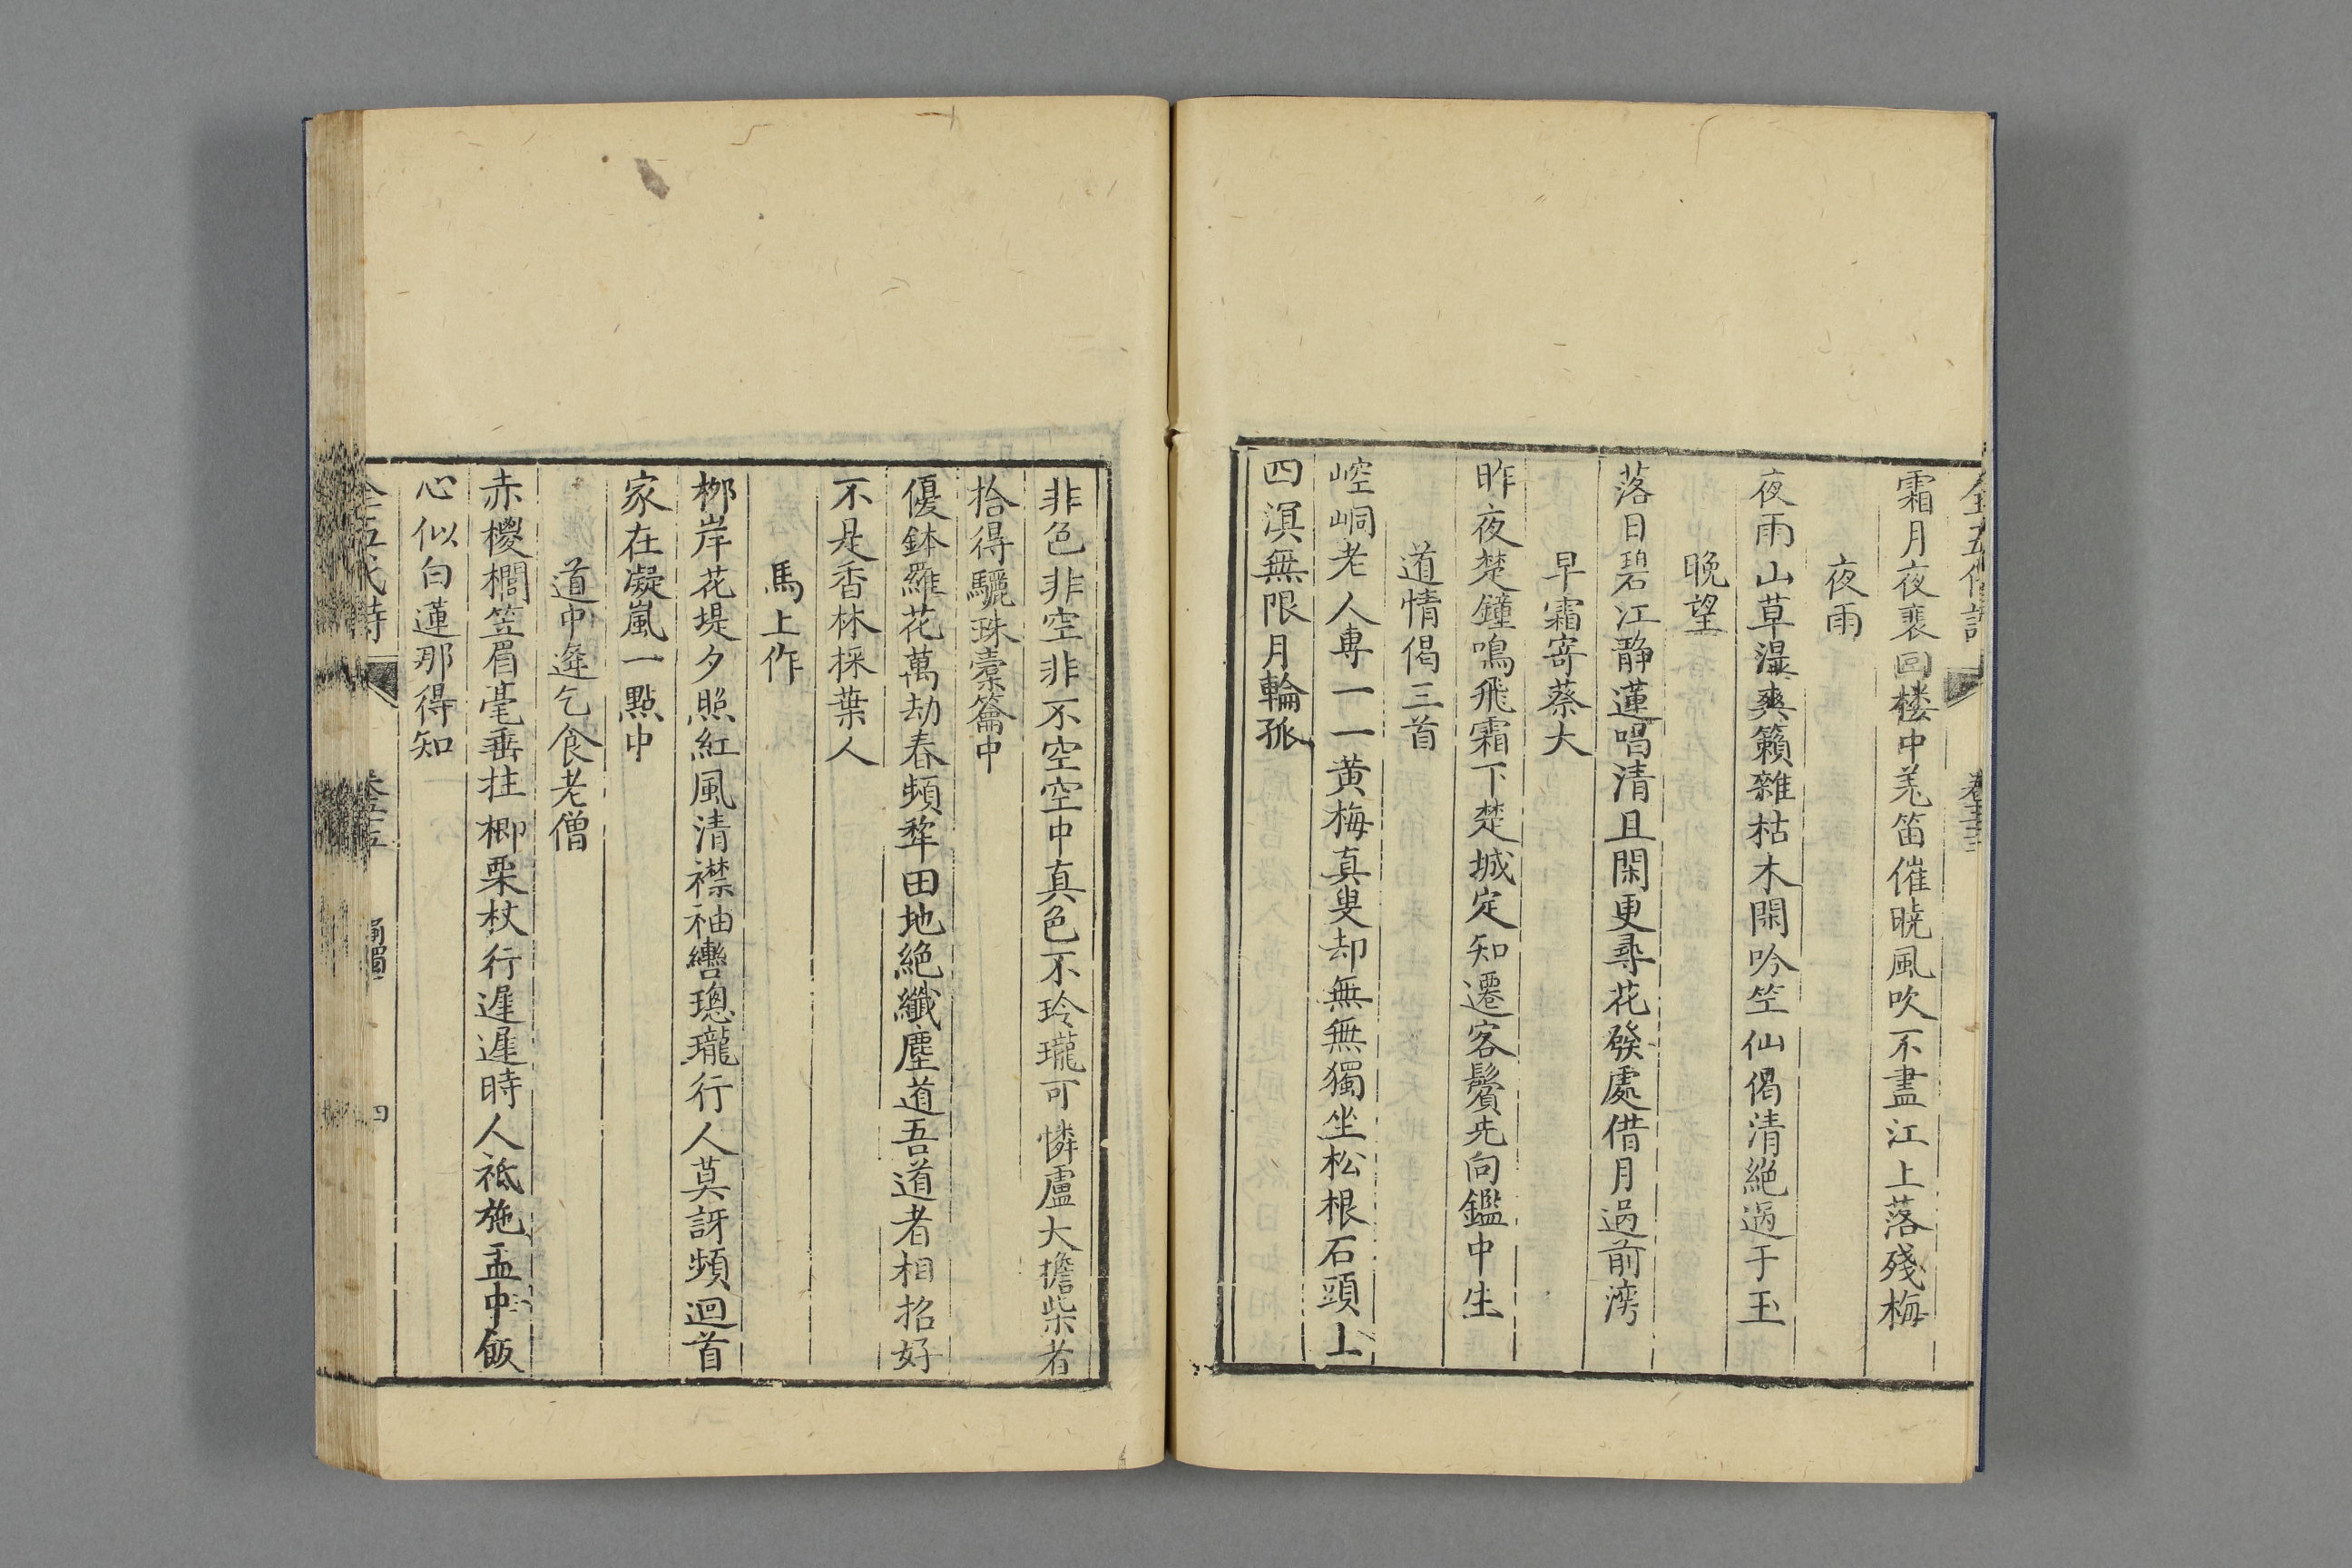 霜月夜裵回楼中羗笛催曉風吹不盡江上落殘梅
夜雨
夜雨山草濕爽籟雜枯木閑吟竺仙偈清絶過于玉
晚望
落日碧江靜蓮唱清且閑更尋花發處借月過前灣
早霜寄蔡大
昨夜楚鐘鳴飛霜下楚城定知遷客鬢先向鑑中生
道情偈三首
崆峒老人專一一黃梅真叟却無無獨坐松根石頭上
四溟無限月輪孤
非色非空非不空空中真色不玲瓏可憐盧大擔柴者
拾得驪珠橐籥中
優鉢羅花萬劫春頻犂田地絶纖塵道吾道者相招好
不是香林採葉人
馬上作
栁岸花堤夕照紅風清襟袖轡璁瓏行人莫訝頻迴首
家在凝嵐一點中
道中逢乞食老僧
赤椶櫚笠眉毫垂拄楖栗杖行遲遲時人祗施盂中飯
心似白蓮那得知
全五代詩
四